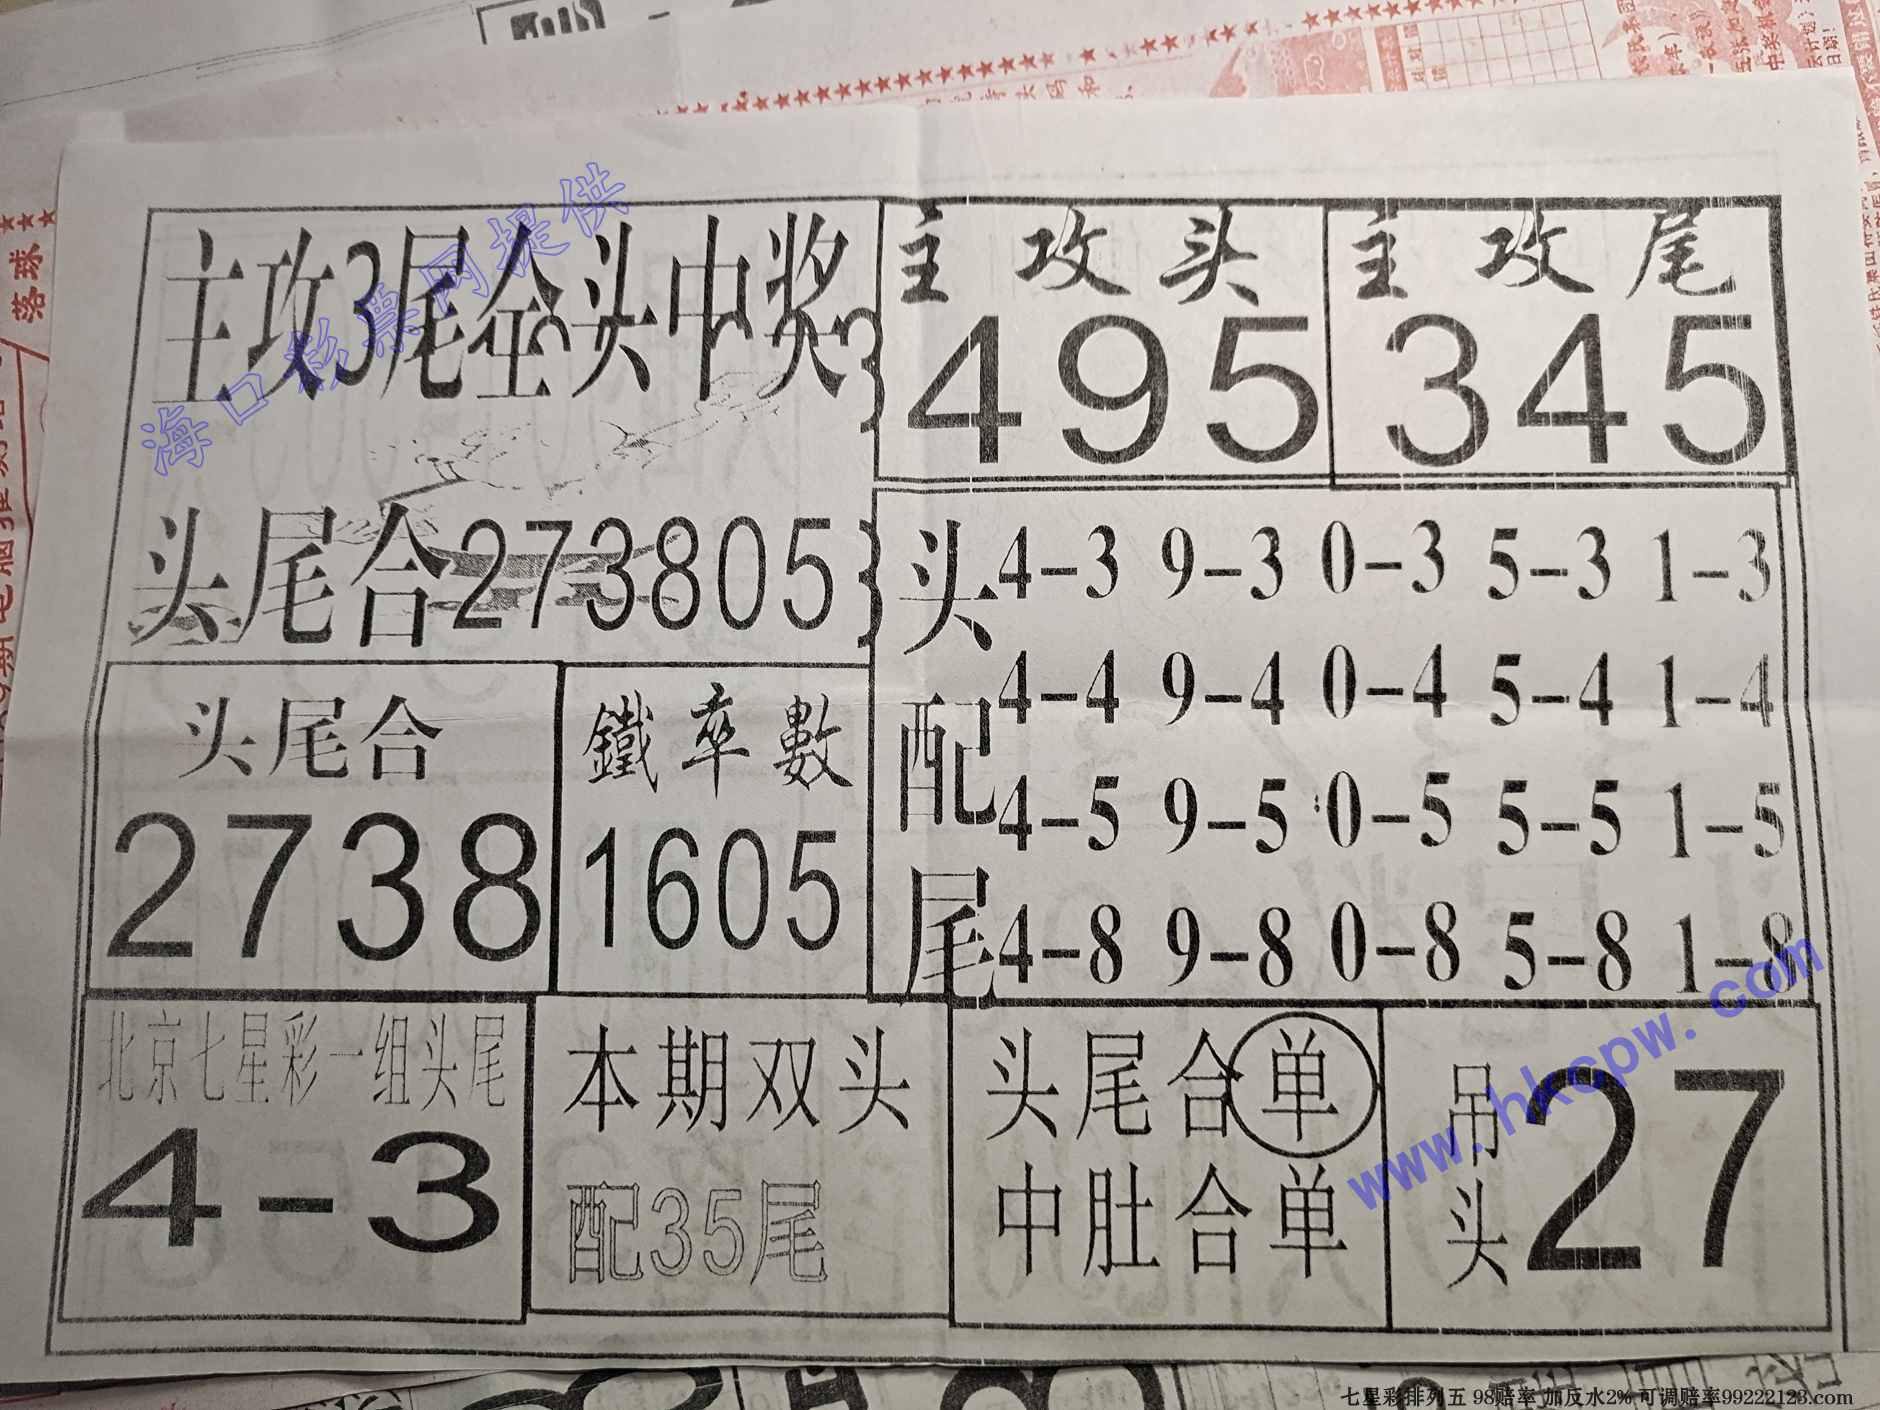 主攻3尾全头中奖
主攻头
495
主攻尾
345
头尾合273805
头配尾
4-3 9-3 0-3 5-3 1-3
4-4 9-4 0-4 5-4 1-4
4-5 9-5 0-5 5-5 1-5
4-8 9-8 0-8 5-8 1-8
头尾合
2738
鐵率數
1605
北京七星彩一组头尾
4-3
本期双头
配35尾
头尾合单
中肚合单
吊头27
海口彩票网提供
www.hkcpw.com
落球
七星彩排列五 98赔率 加反水2% 可调赔率99222123.com